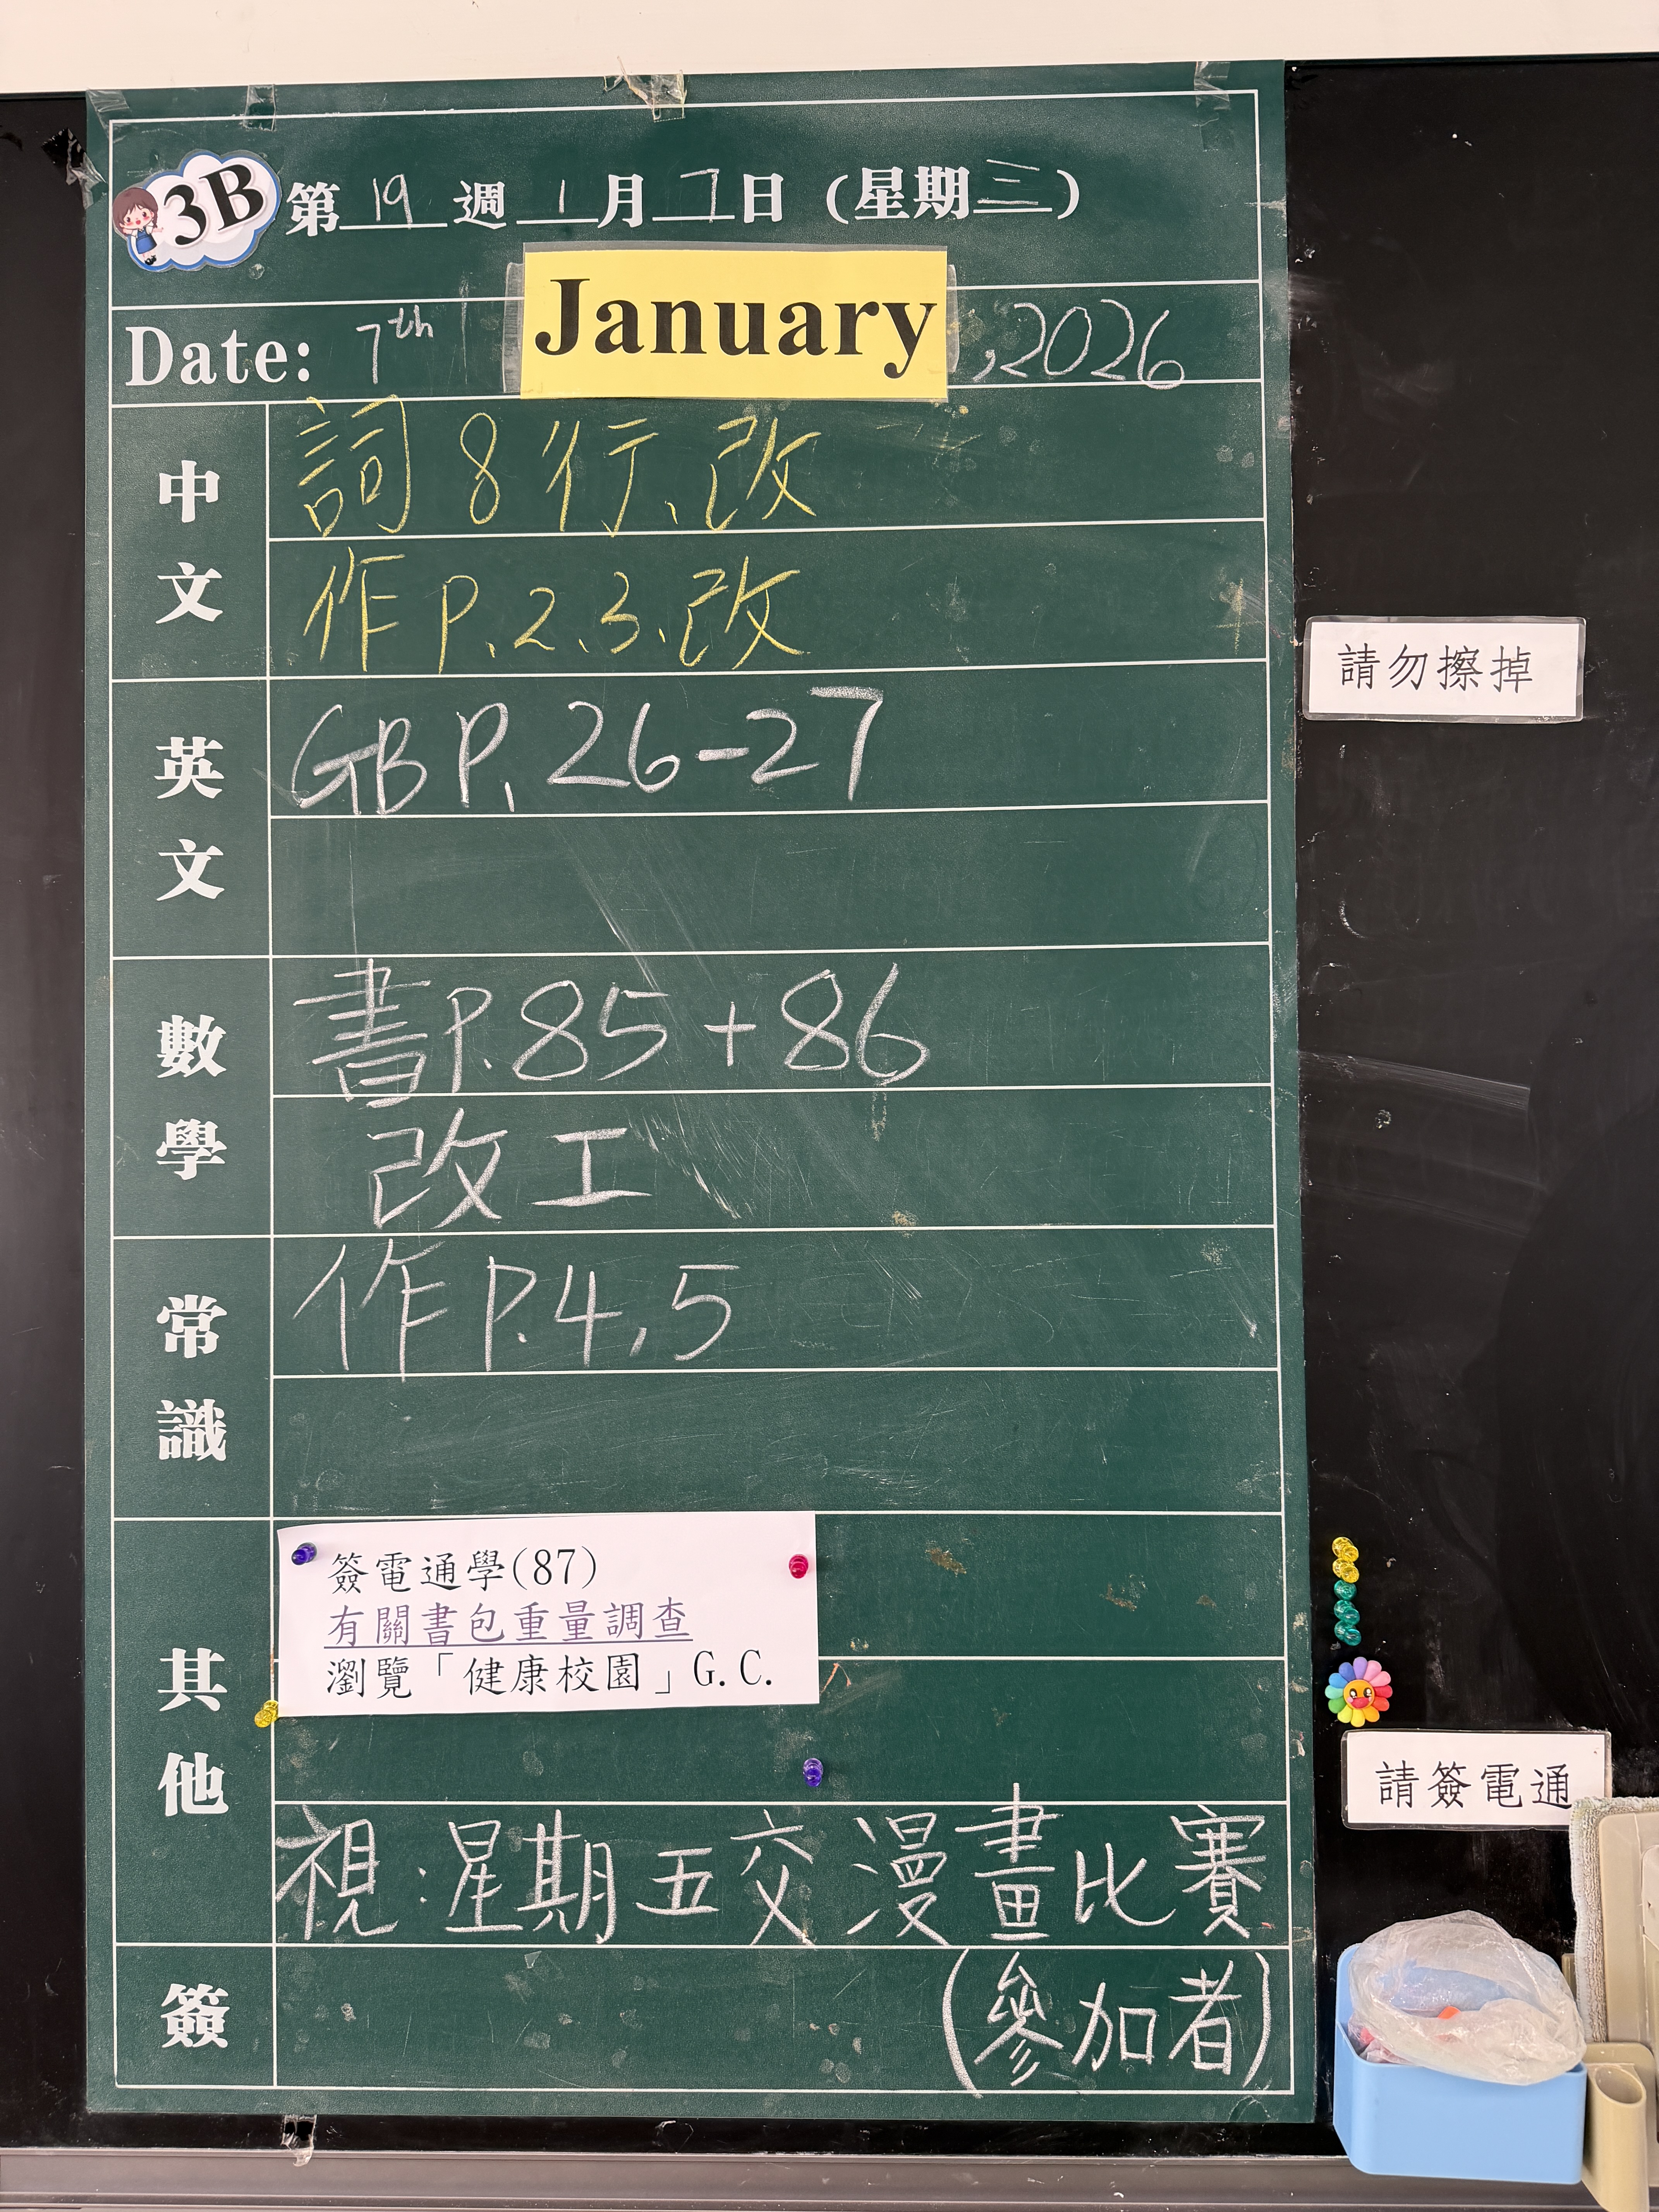 3B 第19週 1月7日 (星期三)
Date: 7th January, 2026
中文
詞8行、改
作P.2、3、改
英文
GB P. 26-27
數學
書P.85+86
改工
常識
作P.4,5
其他
簽電通學(87)
有關書包重量調查
瀏覽「健康校園」G.C.
視:星期五交漫畫比賽
(參加者)
簽
請勿擦掉
請簽電通